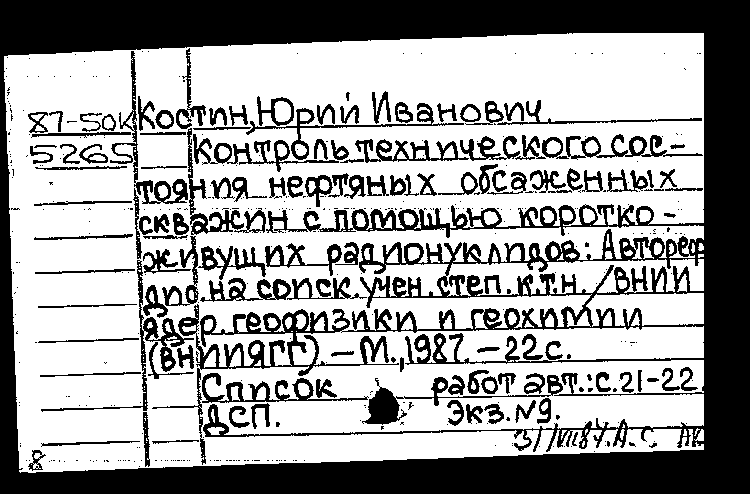 87-50к Костин, Юрий Иванович.
5265 Контроль технического сос-
тояния нефтяных обсаженных
скважин с помощью коротко-
живущих радионуклидов: Автореф.
дис. на соиск. учен. степ. к.т.н. / ВНИИ
ядер. геофизики и геохимии
(ВНИИЯГГ). – М., 1987. – 22 с.
Список работ авт.: с. 21-22.
ДСП. Экз. №9.
8